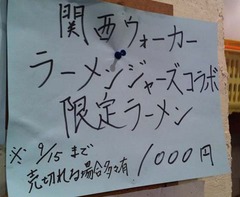 関西ウォーカー
ラーメンジャーズコラボ
限定ラーメン
※9/15まで
売切れる場合多々有 1000円